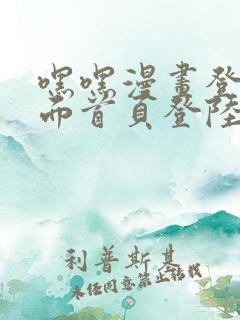 嘿嘿漫畫登
而首頁登陸
利普斯基
未经同意禁止转载